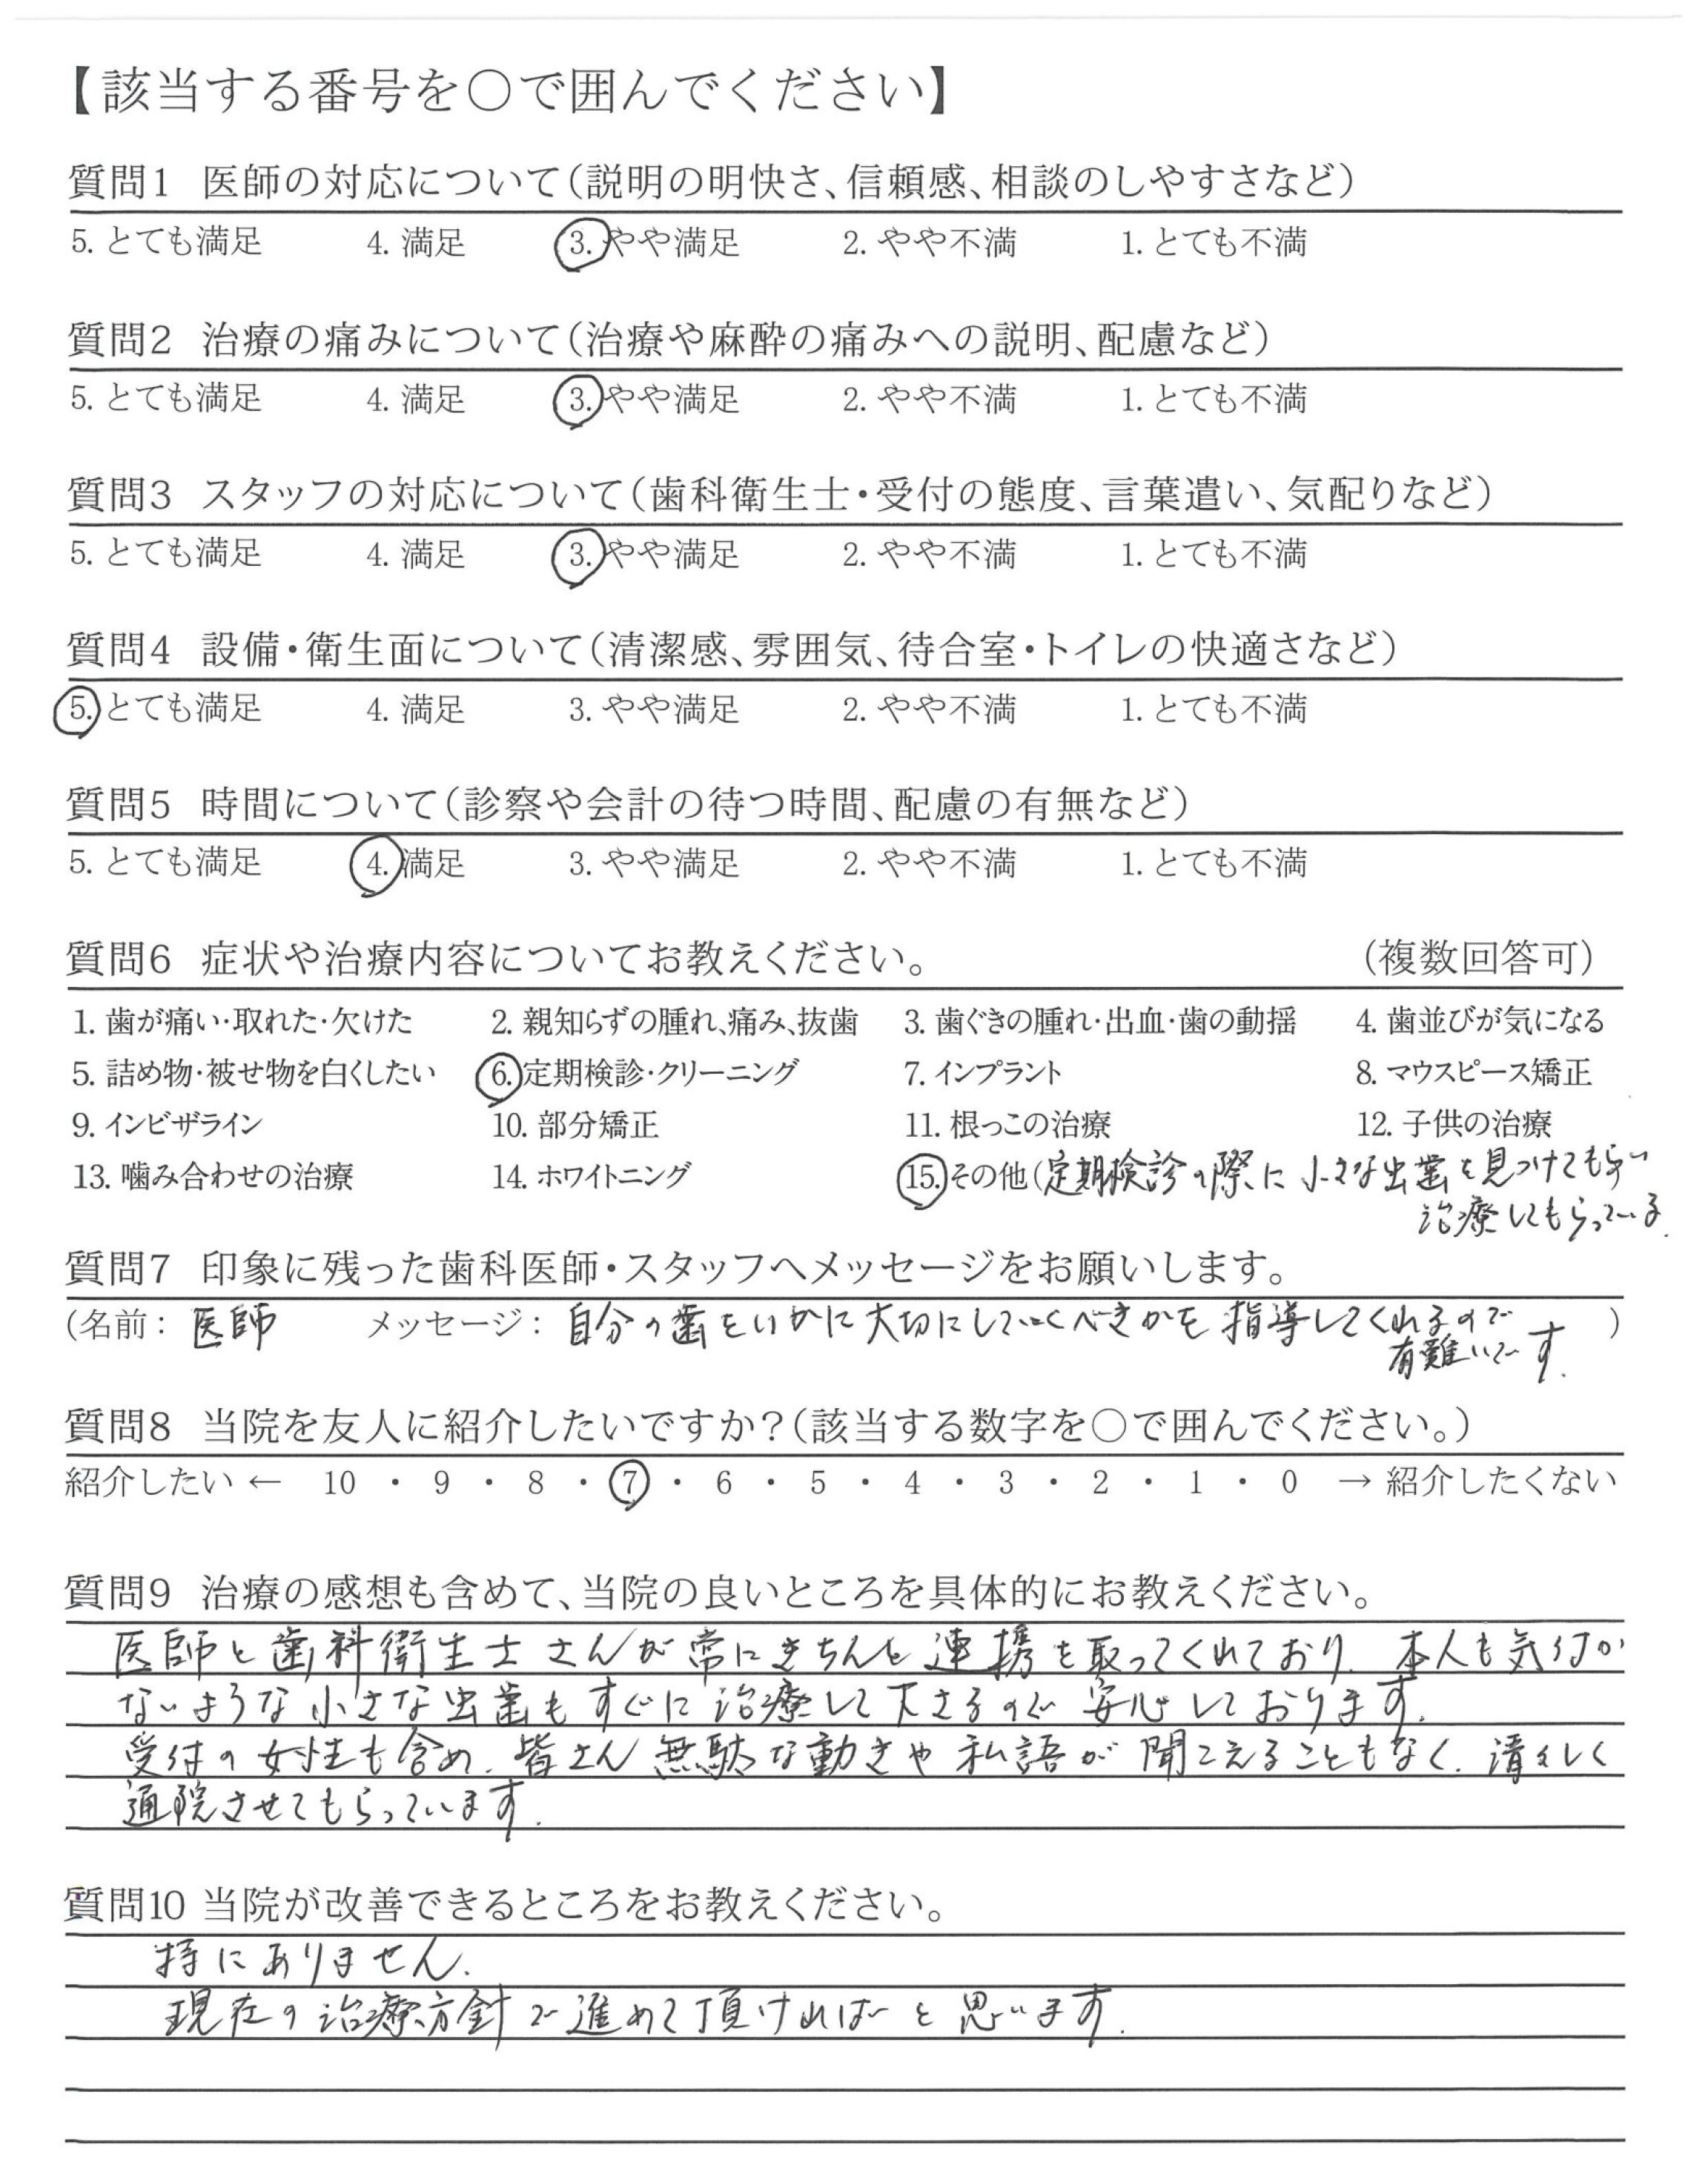 【該当する番号を〇で囲んでください】
質問1 医師の対応について(説明の明快さ、信頼感、相談のしやすさなど)
5. とても満足 4. 満足 3. やや満足 2. やや不満 1. とても不満
質問2 治療の痛みについて(治療や麻酔の痛みへの説明、配慮など)
5. とても満足 4. 満足 3. やや満足 2. やや不満 1. とても不満
質問3 スタッフの対応について(歯科衛生士・受付の態度、言葉遣い、気配りなど)
5. とても満足 4. 満足 3. やや満足 2. やや不満 1. とても不満
質問4 設備・衛生面について(清潔感、雰囲気、待合室・トイレの快適さなど)
5. とても満足 4. 満足 3. やや満足 2. やや不満 1. とても不満
質問5 時間について(診察や会計の待つ時間、配慮の有無など)
5. とても満足 4. 満足 3. やや満足 2. やや不満 1. とても不満
質問6 症状や治療内容についてお教えください。 (複数回答可)
1. 歯が痛い・取れた・欠けた 2. 親知らずの腫れ、痛み、抜歯 3. 歯ぐきの腫れ・出血・歯の動揺 4. 歯並びが気になる
5. 詰め物・被せ物を白くしたい 6. 定期検診・クリーニング 7. インプラント 8. マウスピース矯正
9. インビザライン 10. 部分矯正 11. 根っこの治療 12. 子供の治療
13. 噛み合わせの治療 14. ホワイトニング 15. その他(定期検診の際に小さな虫歯を見つけてもらい
治療してもらっている.
質問7 印象に残った歯科医師・スタッフへメッセージをお願いします。
(名前: 医師 メッセージ: 自分の歯をいかに大切にしていくべきかを指導してくれるので )
有難いです.
質問8 当院を友人に紹介したいですか?(該当する数字を〇で囲んでください。)
紹介したい ← 10 ・ 9 ・ 8 ・ 7 ・ 6 ・ 5 ・ 4 ・ 3 ・ 2 ・ 1 ・ 0 → 紹介したくない
質問9 治療の感想も含めて、当院の良いところを具体的にお教えください。
医師と歯科衛生士さんが常にきちんと連携を取ってくれており、本人も気付か
ないような小さな虫歯もすぐに治療して下さるので安心しております.
受付の女性も含め、皆さん無駄な動きや私語が聞こえることもなく、清々しく
通院させてもらっています.
質問10 当院が改善できるところをお教えください。
特にありません.
現在の治療方針で進めて頂ければと思います.